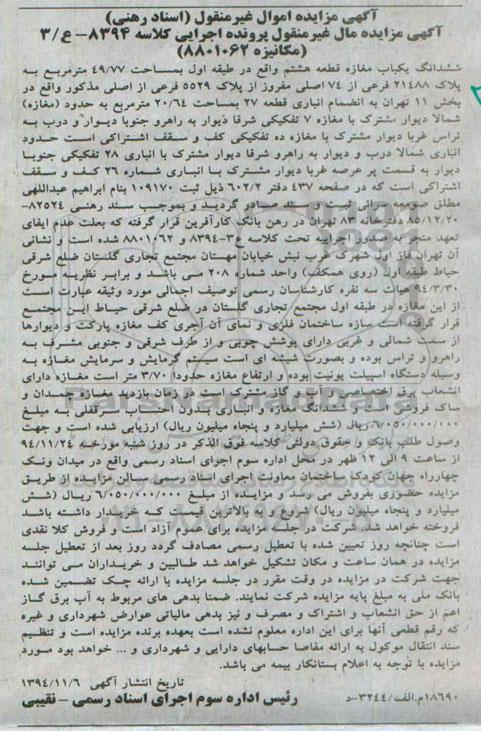 آگهی مزایده اموال غیرمنقول (اسناد رهنی)
آگهی مزایده مال غیرمنقول پرونده اجرایی کلاسه ۸۳۹۴-ع/۳
(مکانیزه ۸۸۰۱۰۶۲)
ششدانگ یکباب مغازه قطعه هشتم واقع در طبقه اول بمساحت ۴۹/۷۷ مترمربع به
پلاک ۲۱۴۸۸ فرعی از ۷۴ اصلی مفروز از پلاک ۵۵۲۹ فرعی از اصلی مذکور واقع در
بخش ۱۱ تهران به انضمام انباری قطعه ۲۷ بمساحت ۲۰/۶۴ مترمربع به حدود (مغازه)
شمالا دیوار مشترک با مغازه ۷ تفکیکی شرقا دیوار به راهرو جنوبا دیوار و درب به
تراس غربا دیوار مشترک با مغازه ده تفکیکی کف و سقف اشتراکی است حدود
انباری شمالا درب و دیوار به راهرو شرقا دیوار مشترک با انباری ۲۸ تفکیکی جنوبا
دیوار به قسمت پر عرصه غربا دیوار مشترک با انباری شماره ۲۶ کف و سقف
اشتراکی است که در صفحه ۴۳۷ دفتر ۶۰۲/۲ ذیل ثبت ۱۰۹۱۷۰ بنام ابراهیم عبداللهی
مطلق صومعه سرائی ثبت و سند صادر گردید و بموجب سند رهنی ۸۲۵۲۴-
۸۵/۱۲/۲۰ دفترخانه ۸۳ تهران در رهن بانک کارآفرین قرار گرفته که بعلت عدم ایفای
تعهد منجر به صدور اجراییه تحت کلاسه ع۳-۸۳۹۴ و ۸۸۰۱۰۶۲ شده است و نشانی
آن تهران فاز اول شهرک غرب نبش خیابان مهستان مجتمع تجاری گلستان ضلع شرقی
حیاط طبقه اول (روی همکف) واحد شماره ۲۰۸ می باشد و برابر نظریه مورخ
۹۴/۳/۳۰ هیات سه نفره کارشناسان رسمی توصیف اجمالی مورد وثیقه عبارت است
از این مغازه در طبقه اول مجتمع تجاری گلستان در ضلع شرقی حیاط این مجتمع
قرار گرفته است سازه ساختمان فلزی و نمای آن آجری کف مغازه پارکت و دیوارها
از سمت شمالی و غربی دارای پوشش چوبی و از طرف شرقی و جنوبی مشرف به
راهرو و تراس بوده و بصورت شیشه ای است سیستم گرمایش و سرمایش مغازه به
وسیله دستگاه اسپیلت یونیت بوده و ارتفاع مغازه حدودا ۳/۷۰ متر است مغازه دارای
انشعاب برق اختصاصی و آب و گاز مشترک است در زمان بازدید مغازه چمدان و
ساک فروش است و ششدانگ مغازه و انباری بدون احتساب سرقفلی به مبلغ
۶/۰۵۰/۰۰۰/۰۰۰ ریال (شش میلیارد و پنجاه میلیون ریال) ارزیابی شده است و جهت
وصول طلب بانک و حقوق دولتی کلاسه فوق الذکر در روز شنبه مورخه ۹۴/۱۱/۲۴
از ساعت ۹ الی ۱۲ ظهر در محل اداره سوم اجرای اسناد رسمی واقع در میدان ونک
چهارراه جهان کودک ساختمان معاونت اجرای اسناد رسمی سالن مزایده از طریق
مزایده حضوری بفروش می رسد و مزایده از مبلغ ۶/۰۵۰/۰۰۰/۰۰۰ ریال (شش
میلیارد و پنجاه میلیون ریال) شروع و به بالاترین قیمت که خریدار داشته باشد
فروخته خواهد شد. شرکت در جلسه مزایده برای عموم آزاد است و فروش کلا نقدی
است چنانچه روز تعیین شده با تعطیل رسمی مصادف گردد روز بعد از تعطیل جلسه
مزایده در همان ساعت و مکان تشکیل خواهد شد طالبین و خریداران می توانند
جهت شرکت در مزایده در وقت مقرر در جلسه مزایده با ارائه چک تضمین شده
بانک ملی به مبلغ پایه مزایده شرکت نمایند. ضمنا بدهی های مربوط به آب برق گاز
اعم از حق انشعاب و اشتراک و مصرف و نیز بدهی مالیاتی عوارض شهرداری و غیره
که رقم قطعی آنها برای این اداره معلوم نشده است بعهده برنده مزایده است و تنظیم
سند انتقال موکول به ارائه مفاصا حسابهای دارایی و شهرداری و ... خواهد بود مورد
مزایده با توجه به اعلام بستانکار بیمه می باشد.
تاریخ انتشار آگهی ۱۳۹۴/۱۱/۶
رئیس اداره سوم اجرای اسناد رسمی - نقیبی
۱۸۶۹۰م.الف/۳۲۴۴-د